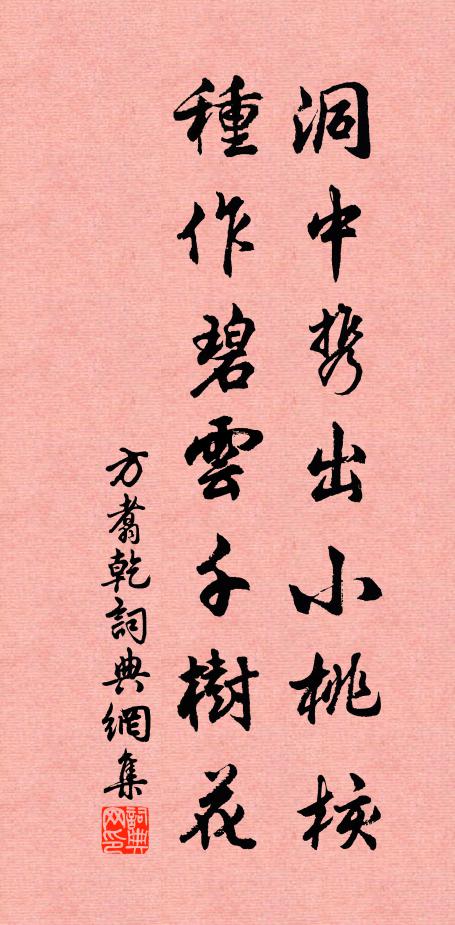 洞中携出小桃核
種作碧雲千樹花
方翥乾詞典網集
詞典
网印